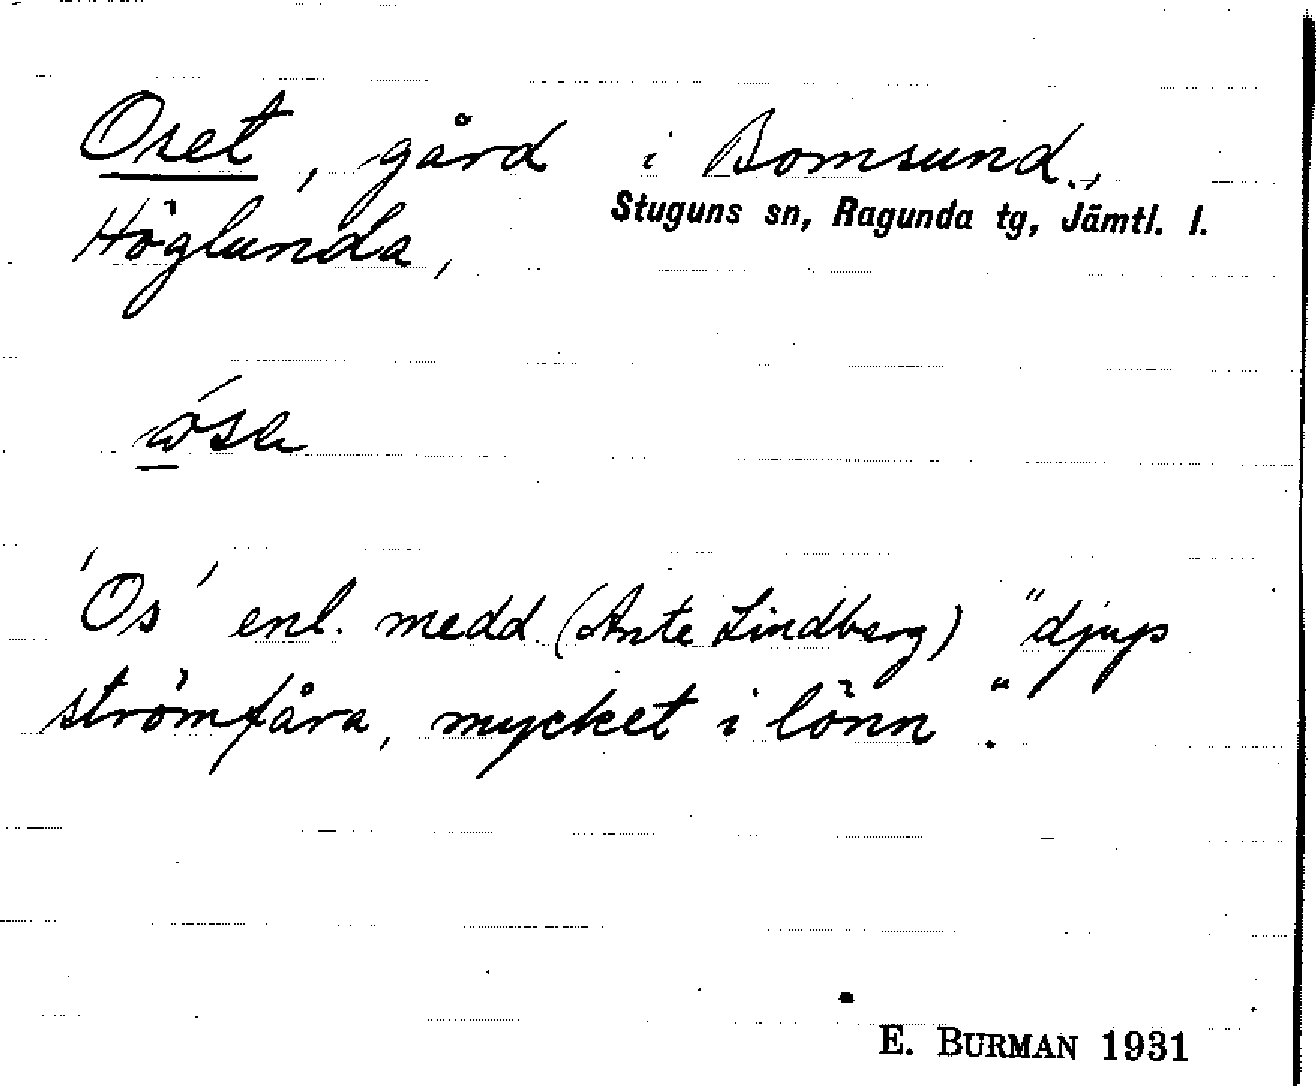 Oset, gård i Bomsund.,
Stuguns sn, Ragunda tg, Jämtl. l.
Höglunda,
'Os' enl. medd. (Ante Lindberg) "djup
strömfåra, mycket i lönn".
E. BURMAN 1931